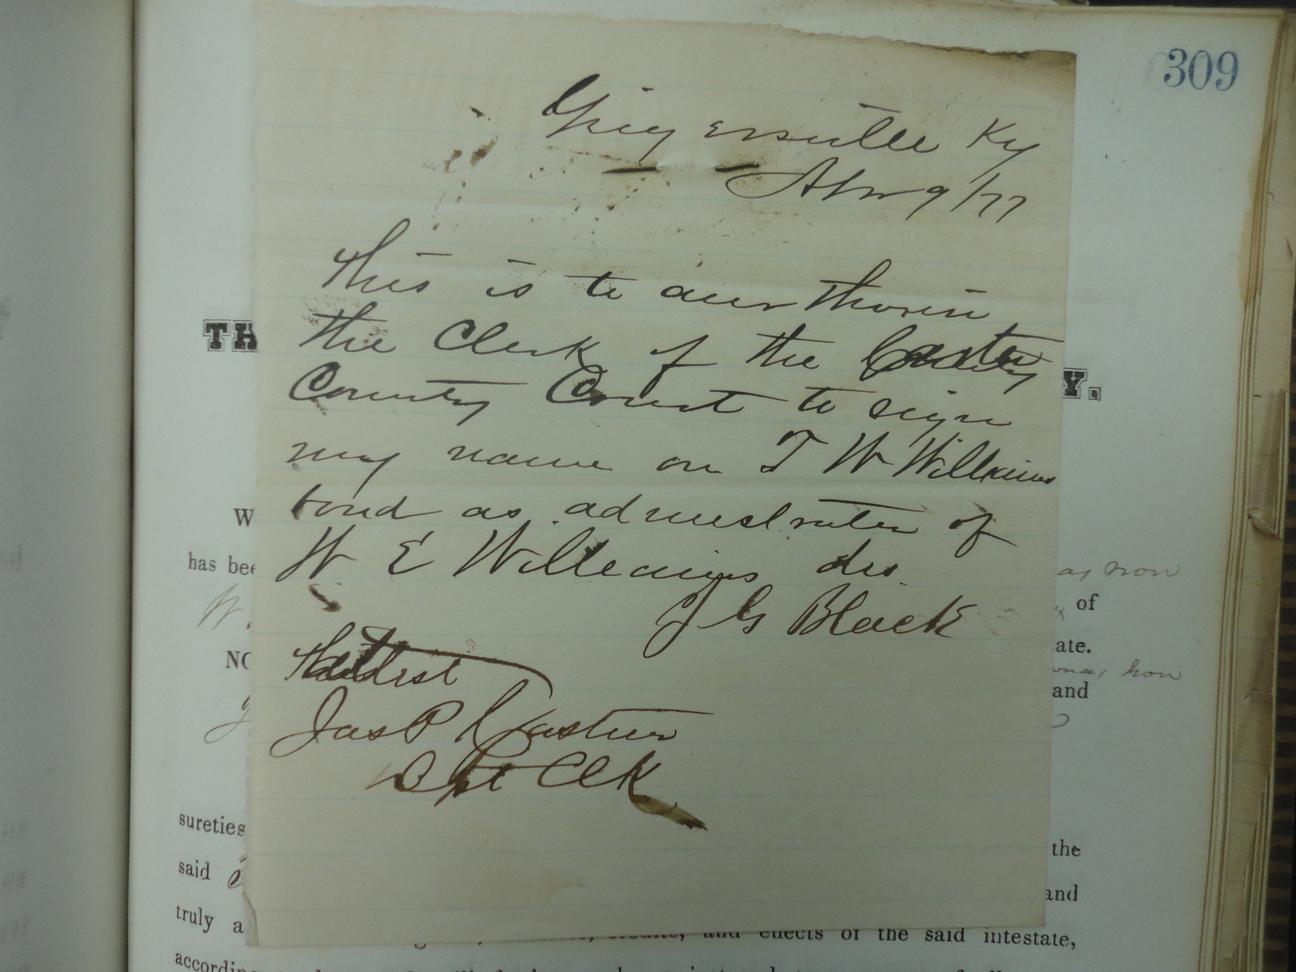 309
Ky
9/77
this is to aur thorin
the Clerk of the Carter
County Court to sign
my name on T W Williams
bond as admistrater of
W E Williams des.
J G Black
Attest
Jas P
D Clk
TH
Y.
W
has bee
non
W.
of
NO
ate.
non
and
sureties
the
said
and
truly a
and effects of the said intestate,
according